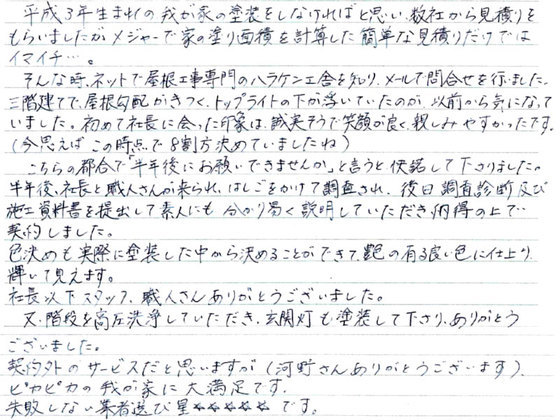 平成3年生まれの我が家の塗装をしなければと思い、数社から見積りを
もらいましたがメジャーで家の塗り面積を計算した簡単な見積りだけでは
イマイチ…。
そんな時、ネットで屋根工事専門のハラケン工舎を知り、メールで問合せを行いました。
三階建てで、屋根勾配がきつく、トップライトの下が浮いていたのが、以前から気になって
いました。初めて社長に会った印象は、誠実そうで笑顔が良く、親しみやすかったです。
(今思えばこの時点で8割方決めていましたね)
こちらの都合で「半年後にお願いできませんか」と言うと、快諾して下さりました。
半年後、社長と職人さんが来られ、はしごをかけて調査され、後日調査診断及び
施工資料書を提出して素人にも分かり易く説明していただき、納得の上で
契約しました。
色決めも実際に塗装した中から決めることができて、艶の有る良い色に仕上り
輝いて見えます。
社長以下スタッフ、職人さんありがとうございました。
又、階段を高圧洗浄していただき、玄関灯も塗装して下さり、ありがとう
ございました。
契約外のサービスだと思いますが(河野さんありがとうございます)、
ピカピカの我が家に大満足です。
失敗しない業者選び星★★★★★です。